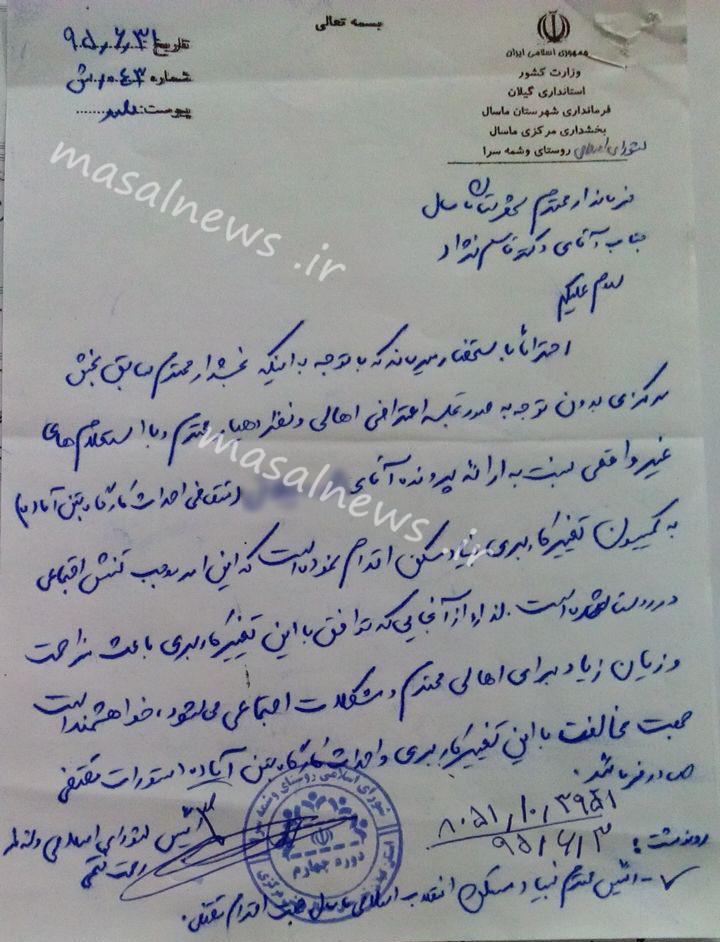 بسمه تعالی
جمهوری اسلامی ایران
وزارت کشور
استانداری گیلان
فرمانداری شهرستان ماسال
بخشداری مرکزی ماسال
شورای اسلامی روستای وشمه سرا
تاریخ ۹۵/۶/۳۱
شماره ۰۴۳
پیوست:
masalnews.ir
فرماندار محترم شهرستان ماسال
جناب آقای دکتر قاسم نژاد
سلام علیکم
احتراماً باستحضار میرساند که با توجه به اینکه بخشدار محترم سابق بخش
مرکزی بدون توجه به صورتجلسه اعتراضی اهالی و نظر دهیار محترم و با استعلام های
غیر واقعی نسبت به ارائه پرونده آقای (متقاضی احداث کارگاه بتن آماده)
masalnews.ir
به کمیسیون تغییر کاربری بنیاد مسکن اقدام نموده است که این امر موجب تنش اجتماعی
در روستا شده است. لذا از آنجایی که توافق با این تغییر کاربری باعث مزاحمت
و زیان زیاد برای اهالی محترم و مشکلات اجتماعی می شود، خواهشمند است
جهت مخالفت با این تغییر کاربری و احداث کارگاه بتن آماده دستورات مقتضی
صادر فرمائید.
رئیس شورای اسلامی
شورای اسلامی روستای وشمه سرا
دوره چهارم
۸۰۵۱/۱۰/۳۹۵۱
۹۵/۶/۳
رونوشت:
- رئیس محترم بنیاد مسکن انقلاب اسلامی ماسال جهت اقدام مقتضی.